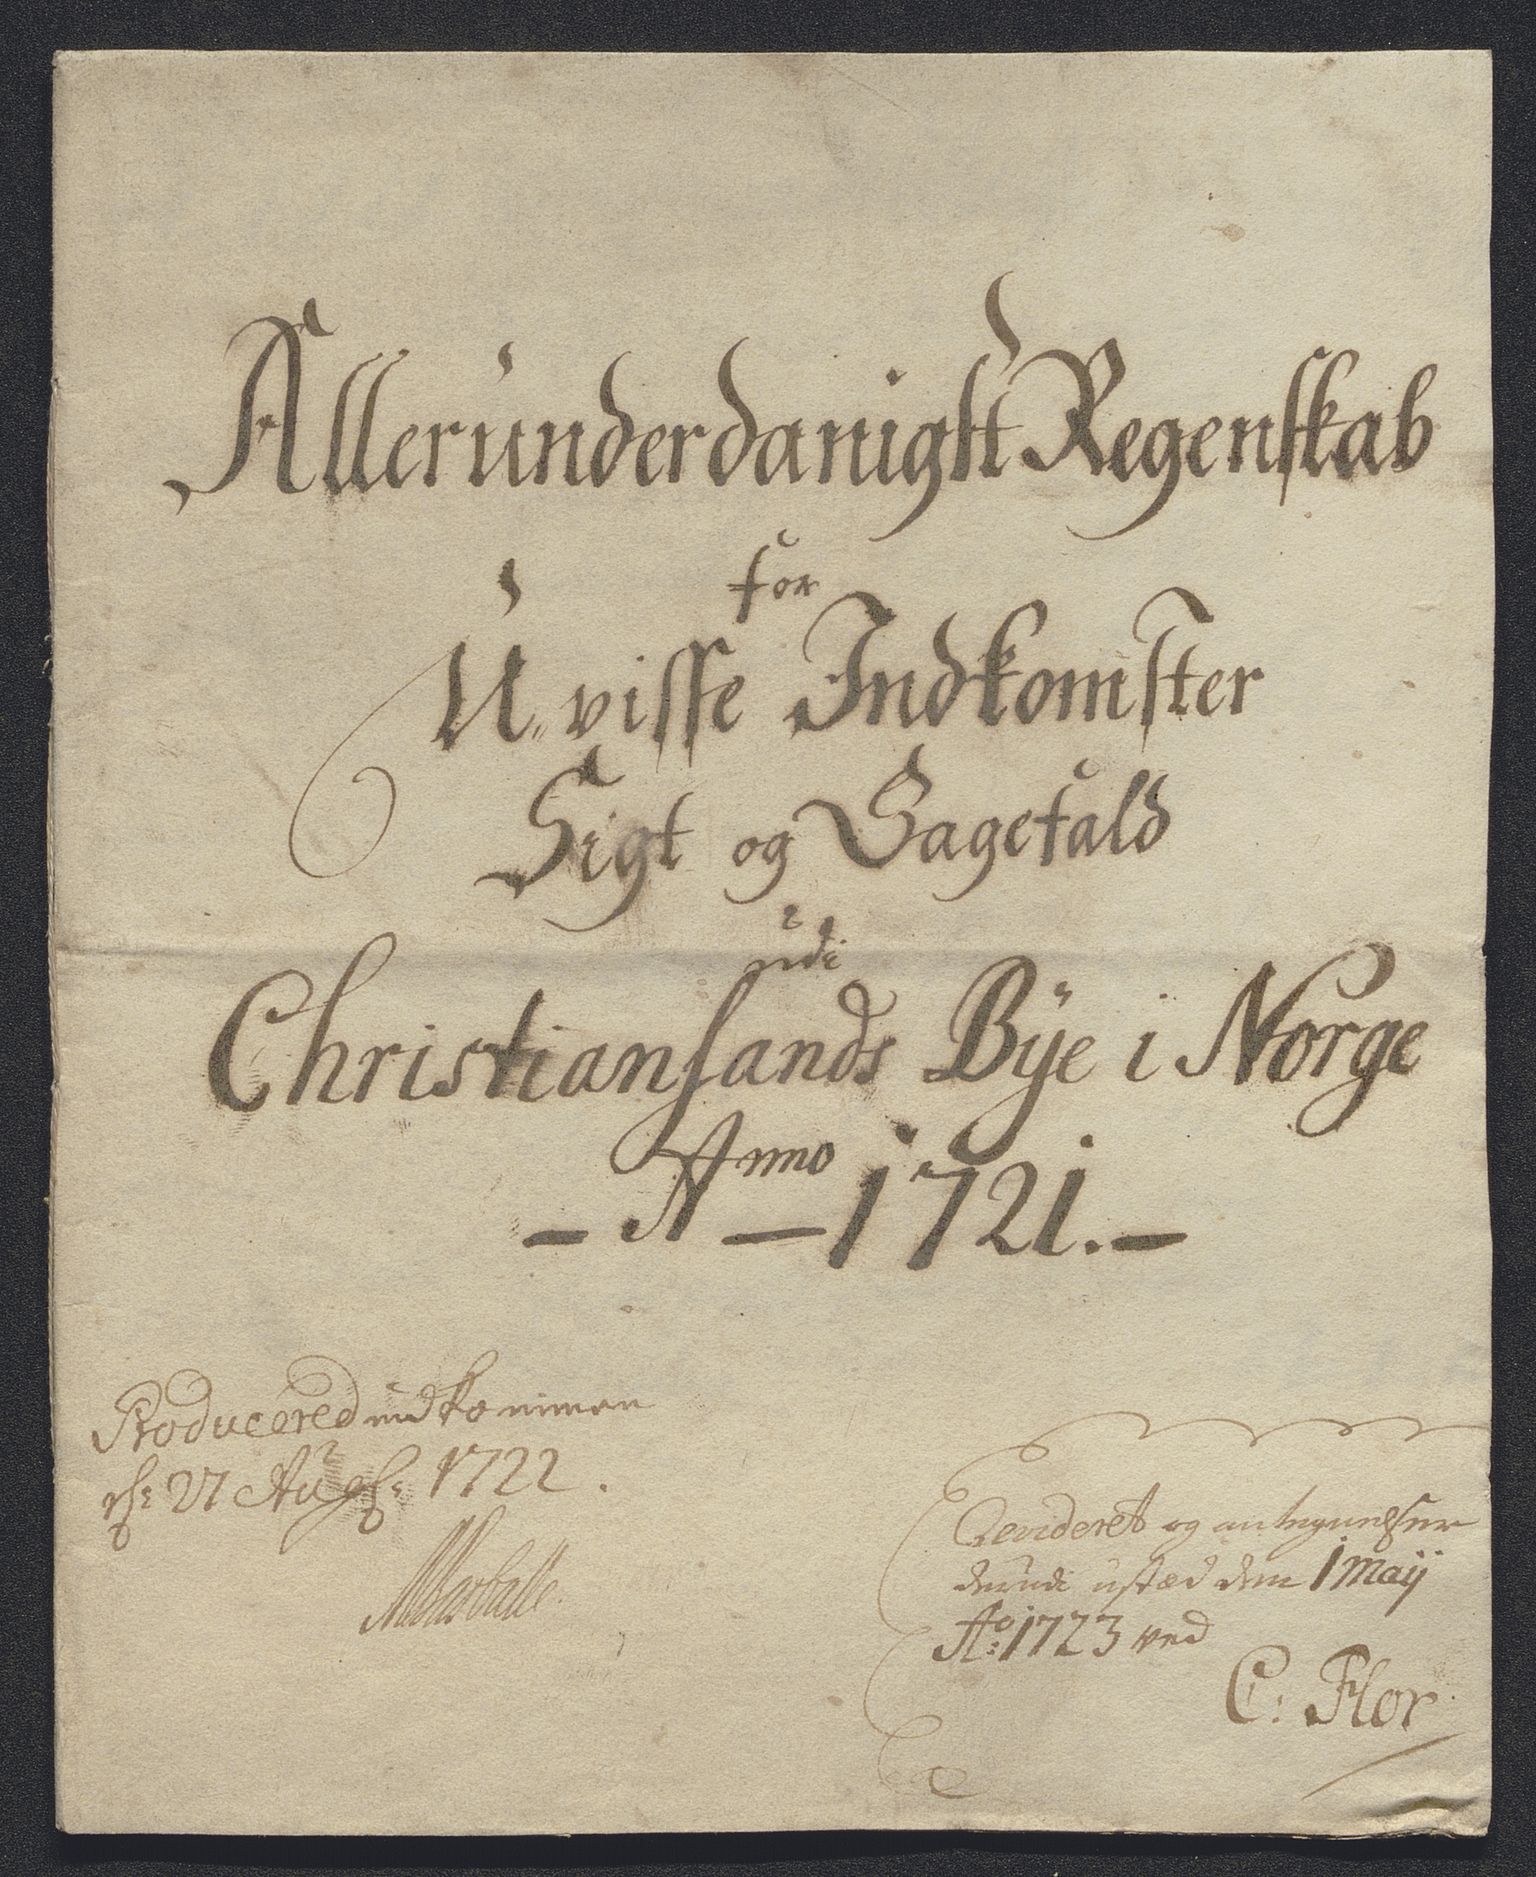 Allerunderdanigst Regenskab
for
U,, visse Indkomster
Sigt og Sagefald
udi
Christiansands Bye i Norge
Anno
1721.
Produceret indkommen
27 Aug: 1722.
Revideret og antegnelser
derudi ustæd dem 1 Maij
Ao: 1723 ved
C: Flor